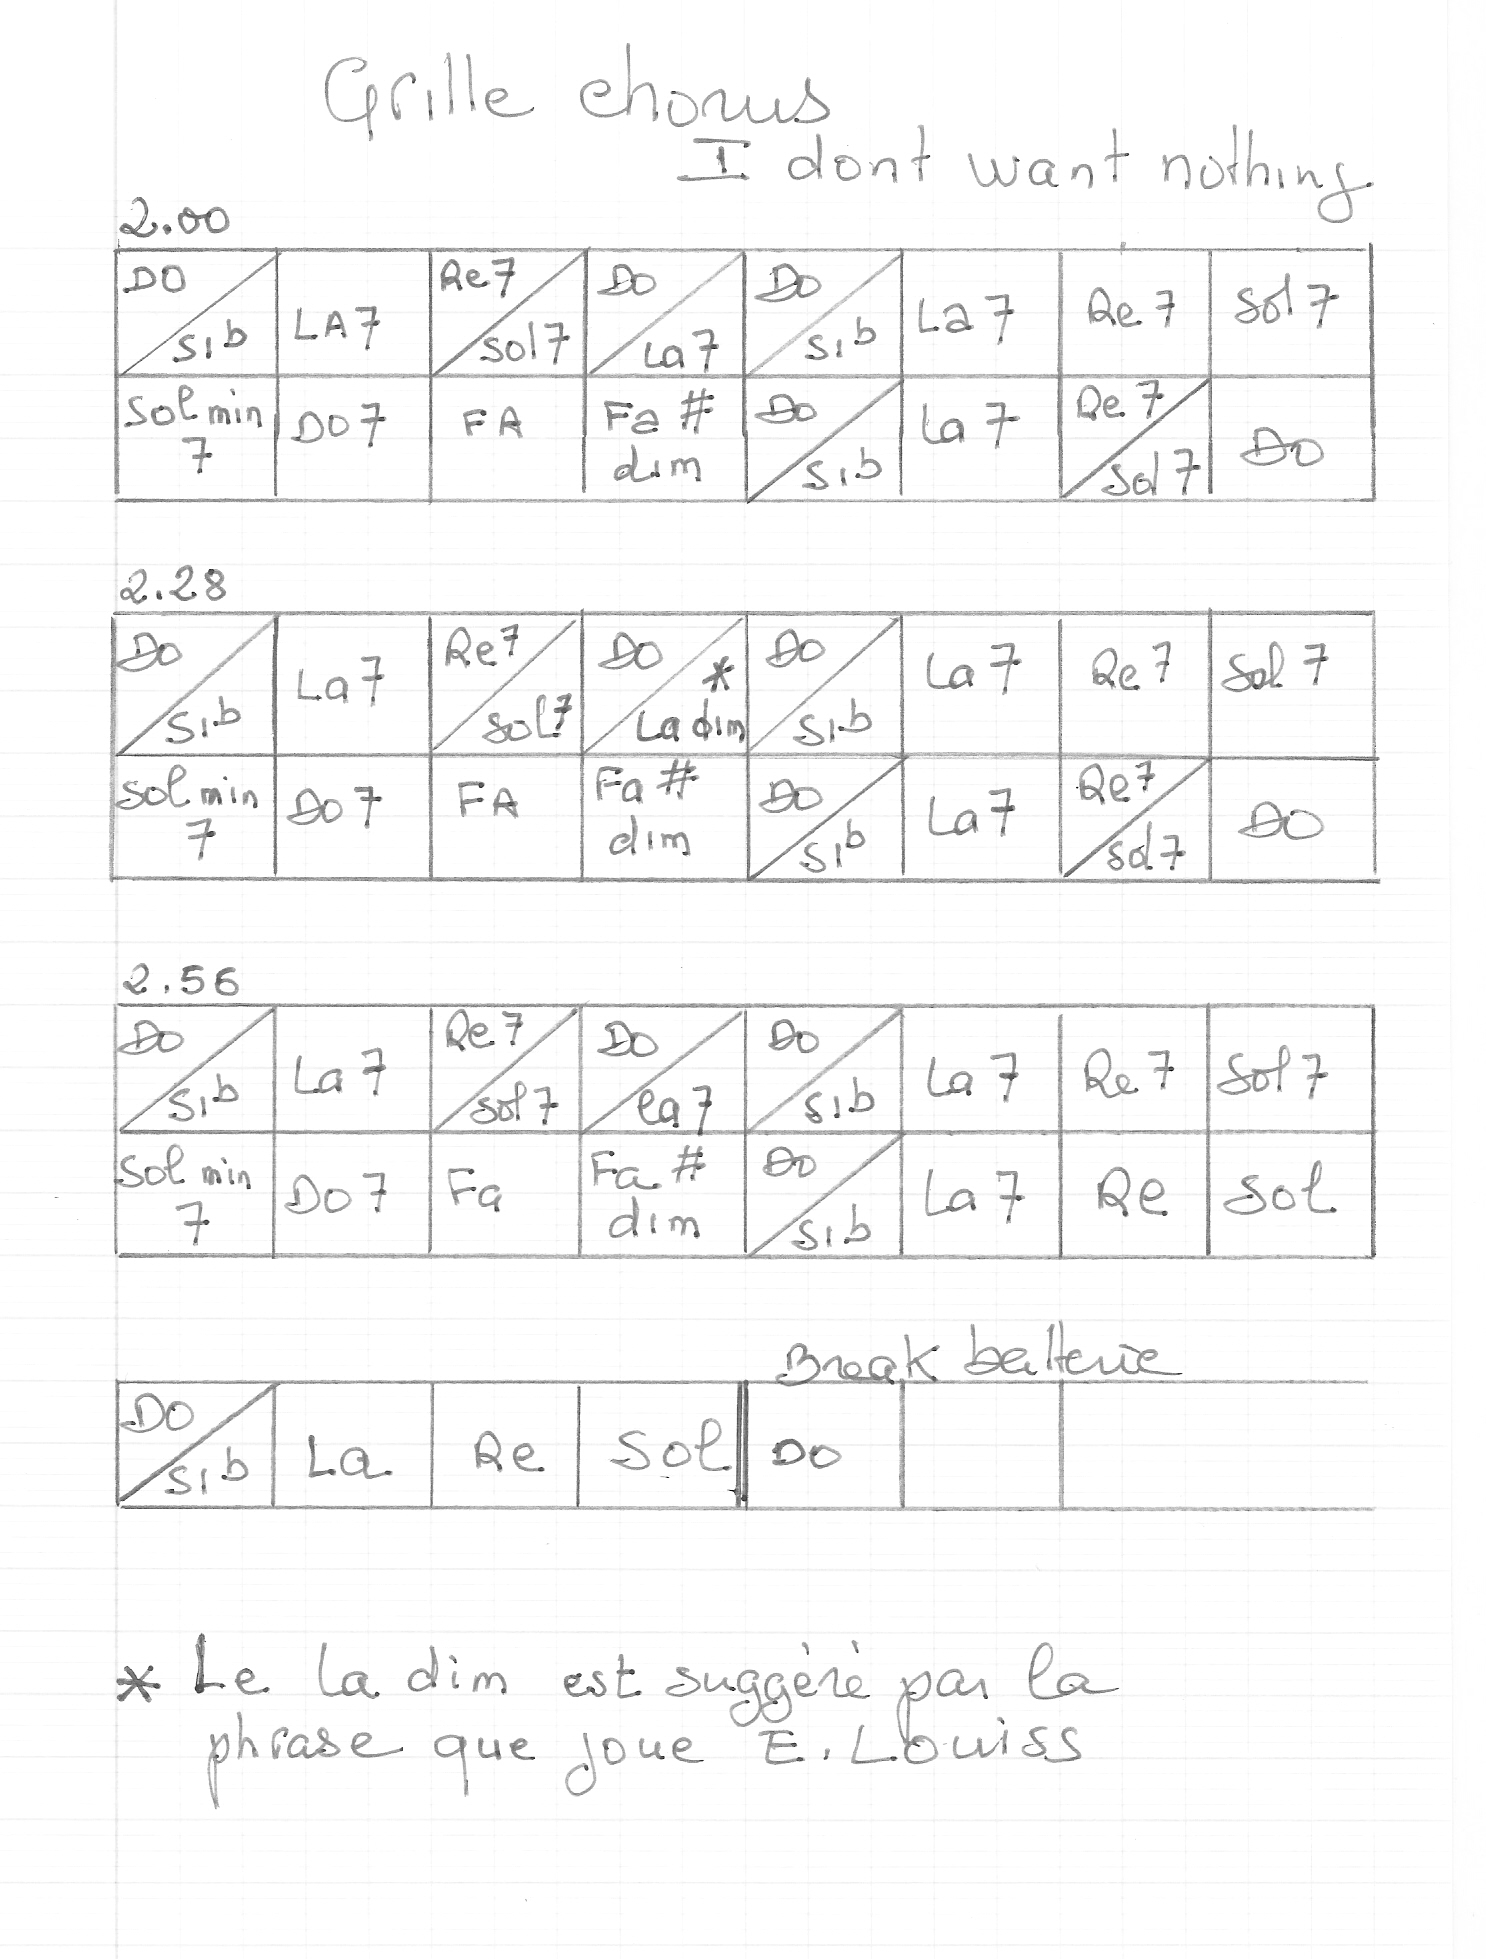 Grille chorus
I dont want nothing
2.00
DO / Sib | LA7 | Re7 / Sol7 | Do / La7 | Do / Sib | La7 | Re7 | Sol7
Sol min 7 | DO7 | FA | Fa# dim | Do / Sib | La7 | Re7 / Sol7 | Do
2.28
Do / Sib | La7 | Re7 / Sol7 | Do / * La dim | Do / Sib | La7 | Re7 | Sol7
Sol min 7 | Do7 | FA | Fa# dim | Do / Sib | La7 | Re7 / Sol7 | DO
2.56
Do / Sib | La7 | Re7 / Sol7 | Do / la7 | Do / Sib | La7 | Re7 | Sol7
Sol min 7 | Do7 | Fa | Fa# dim | Do / Sib | La7 | Re | Sol
Break batterie
DO / Sib | La | Re | Sol | DO
* Le La dim est suggéré par la
phrase que joue E. Louiss